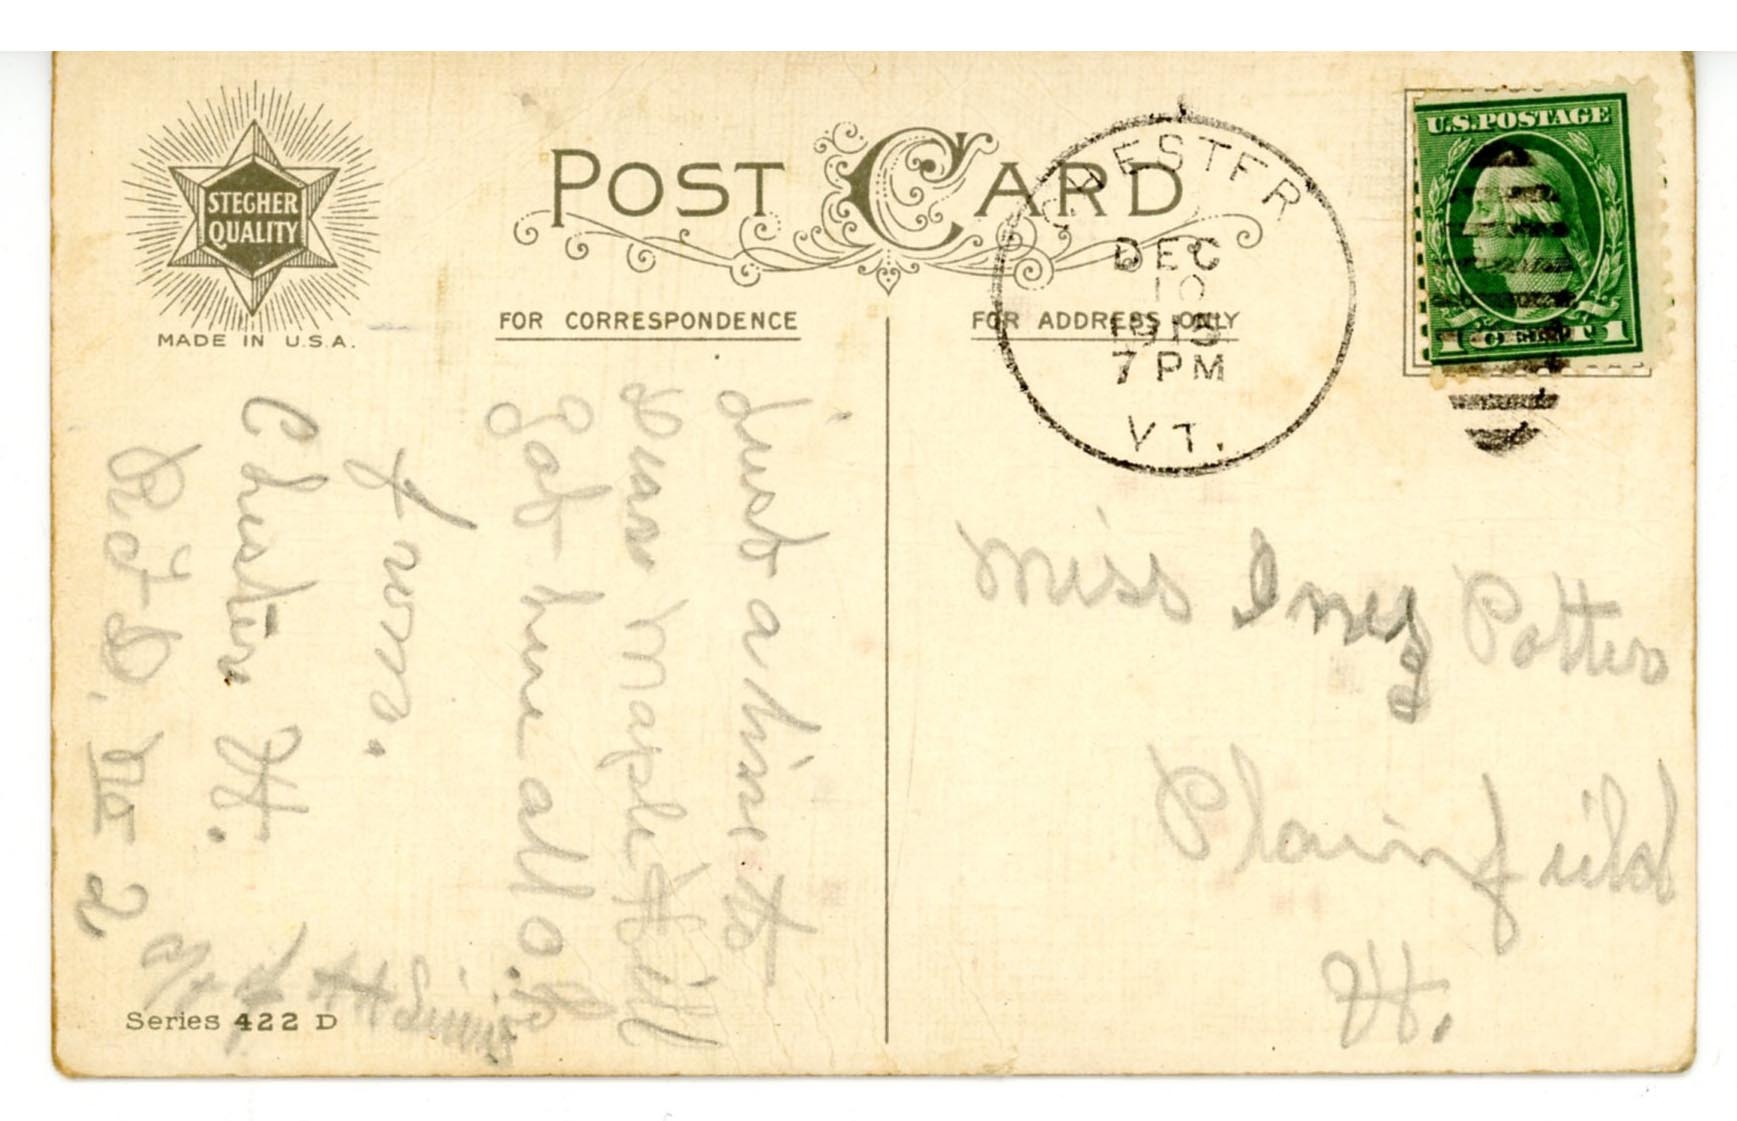 STEGHER
QUALITY
MADE IN U.S.A.
POST CARD
FOR CORRESPONDENCE
FOR ADDRESS ONLY
CHESTER
DEC
10
7 PM
VT.
U.S.POSTAGE
1 1
Just a line to
Dear Maple Hill
Got here all O.K.
Chester Vt.
R.F.D. No 2
Miss Inez Potter
Plainfield
Vt.
Series 422 D